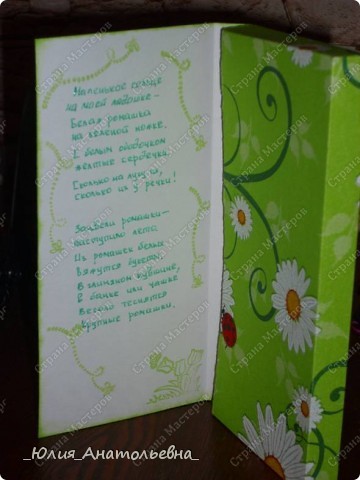 Маленькое солнце
на моей ладошке -
Белая ромашка
на зелёной ножке.
С белым ободочком
жёлтые сердечки.
Сколько на лугу их,
сколько их у речки!
Зацвели ромашки -
наступило лето.
Из ромашек белых
Вяжутся букеты.
В глиняном кувшине,
в банке или чашке
Весело теснятся
крупные ромашки.
Страна Мастеров
_Юлия_Анатольевна_